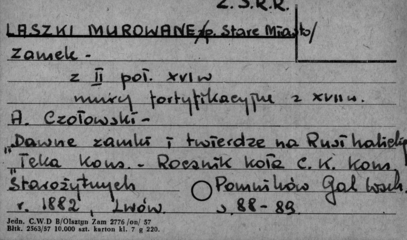 Z.S.R.R.
LASZKI MUROWANE /p. Stare Miasto/
Zamek -
z II poł. XVI w
mury fortyfikacyjne z XVII w.
A. Czołowski -
"Dawne zamki i twierdze na Rusi halickiej
"Teka Kons. - Rocznik koła C.K. Kons.
Starożytnych Pomników Gal. wsch.
r. 1882, Lwów. s. 88-89.
Jedn. C.W.D B/Olsztyn Zam 2776/oo/ 57
Bltk. 2563/57 10.000 szt. karton kl. 7 g 220.